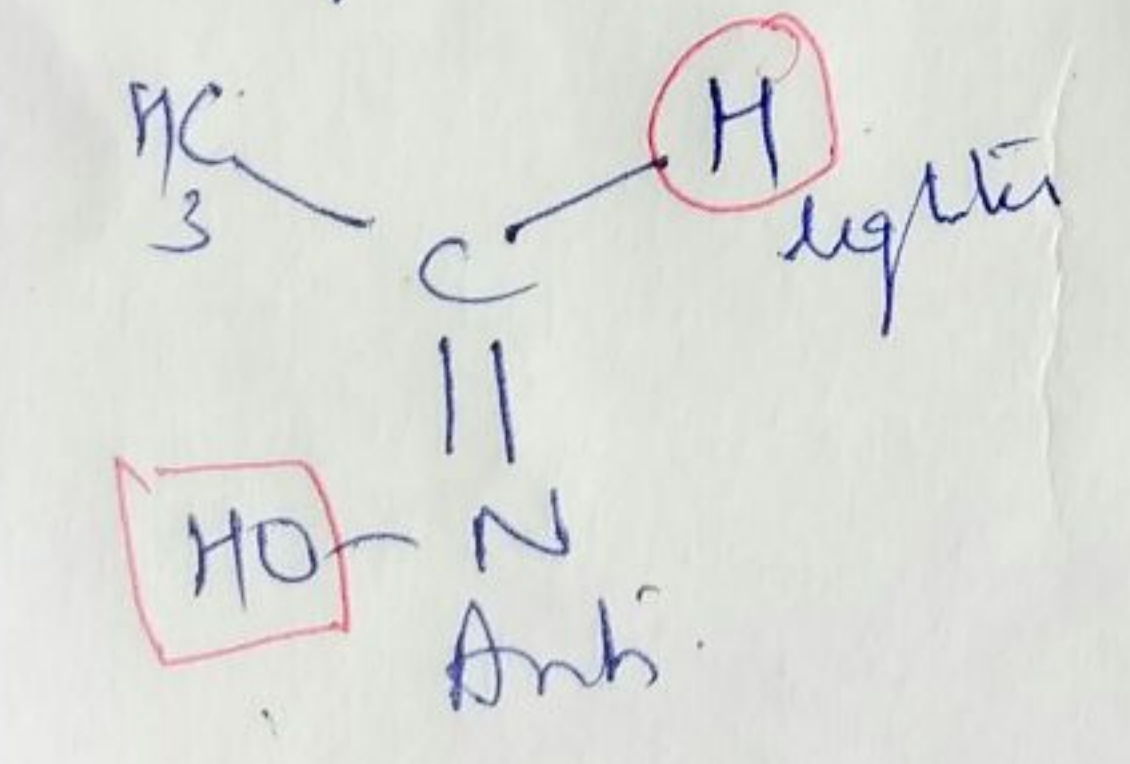 H3C H
lighter
C
HO N
Anti